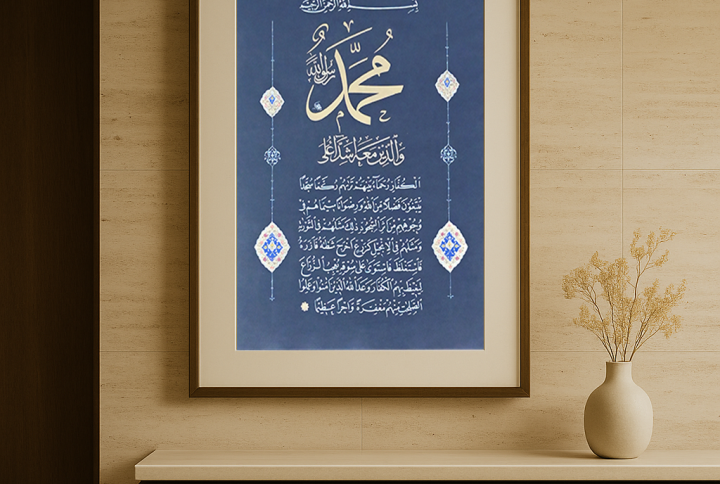 بسم الله الرحمن الرحيم
محمد رسول الله
والذين معه اشداء على
الكفار رحماء بينهم تراهم ركعا سجدا
يبتغون فضلا من الله ورضوانا سيماهم في
وجوههم من اثر السجود ذلك مثلهم في التورية
ومثلهم في الانجيل كزرع اخرج شطئه فازره
فاستغلظ فاستوى على سوقه يعجب الزراع
ليغيظ بهم الكفار وعد الله الذين امنوا وعملوا
الصلحت منهم مغفرة واجرا عظيما